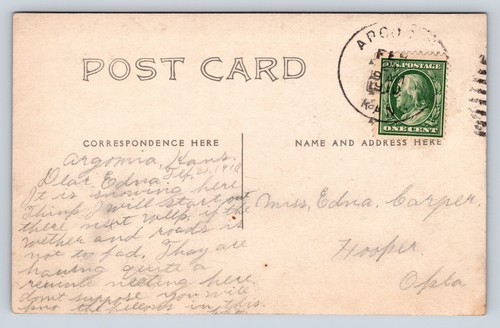 POST CARD
ARGO
FEB
KAN
U.S. POSTAGE
ONE CENT
CORRESPONDENCE HERE
NAME AND ADDRESS HERE
Argonia, Kans.
Dear Edna. Feb. 21, 1910
It is snowing here
Think I will start out
there next week if the
wether and roads is
not to bad. They are
having quite a
meeting here.
dont suppose you will
the in this
Miss, Edna, Carper.
Hooper
Okla